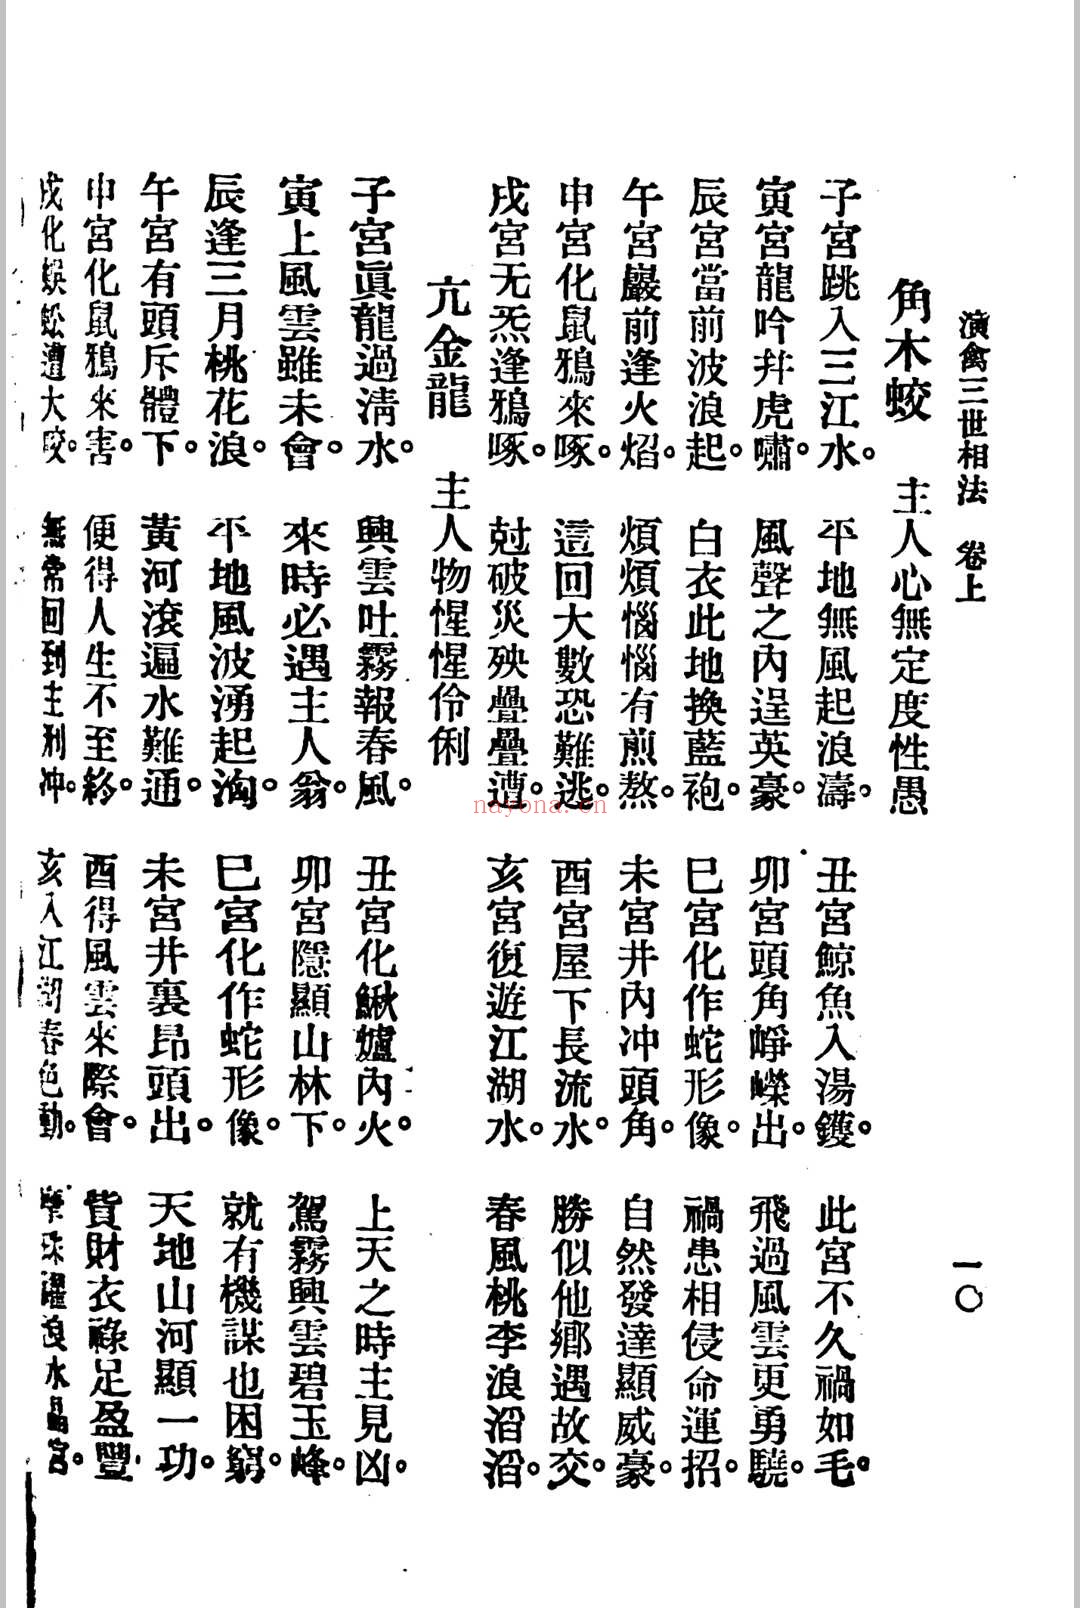 演禽三世相法　卷上
一〇
角木蛟　主人心無定度性愚
子宮跳入三江水。平地無風起浪濤。丑宮鯨魚入湯鑊。此宮不久禍如毛。
寅宮龍吟幷虎嘯。風聲之內逞英豪。卯宮頭角崢嶸出。飛過風雲更勇驍。
辰宮當前波浪起。白衣此地換藍袍。巳宮化作蛇形像。禍患相侵命運招。
午宮巖前逢火焰。煩煩惱惱有煎熬。未宮井內冲頭角。自然發達顯威豪。
申宮化鼠鴉來啄。這回大數恐難逃。酉宮屋下長流水。勝似他鄉遇故交。
戌宮无炁逢鴉啄。尅破災殃疊疊遭。亥宮復遊江湖水。春風桃李浪滔滔。
亢金龍　主人物惺惺伶俐
子宮眞龍過淸水。興雲吐霧報春風。丑宮化鰍爐內火。上天之時主見凶。
寅上風雲雖未會。來時必遇主人翁。卯宮隱顯山林下。駕霧興雲碧玉峰。
辰逢三月桃花浪。平地風波湧起洶。巳宮化作蛇形像。就有機謀也困窮。
午宮有頭斥體下。黃河滾遍水難通。未宮井裏昂頭出。天地山河顯一功。
申宮化鼠鴉來害。便得人生不至終。酉得風雲來際會。貨財衣祿足盈豐
戌化蜈蚣遭大咬。無常回到主刑冲。亥入江湖春色動。珠躍浪水晶宮。
nayona.cn